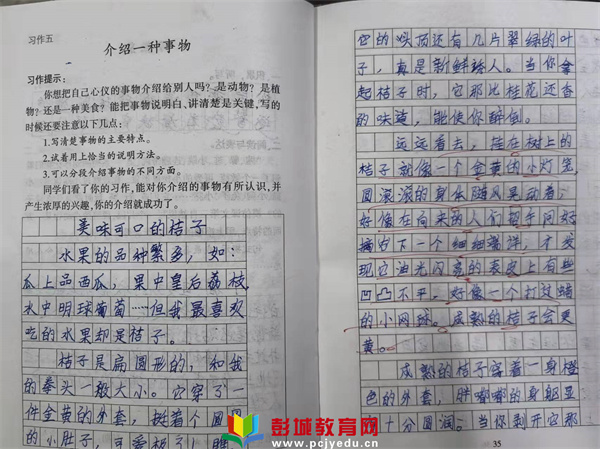 习作五
介绍一种事物
习作提示：
你想把自己心仪的事物介绍给别人吗？是动物？是植
物？还是一种美食？能把事物说明白、讲清楚是关键，写的
时候还要注意以下几点：
1.写清楚事物的主要特点。
2.试着用上恰当的说明方法。
3.可以分段介绍事物的不同方面。
同学们看了你的习作，能对你介绍的事物有所认识，并
产生浓厚的兴趣，你的介绍就成功了。
美味可口的桔子
水果的品种繁多，如：
瓜上品西瓜，果中皇后荔枝，
水中明球葡萄……但我最喜欢
吃的水果却是桔子。
桔子是扁圆形的，和我
的拳头一般大小。它穿了一
件金黄的外套，挺着个圆
的小肚子，可爱极了！瞧
它的头顶还有几片翠绿的叶
子，真是新鲜诱人。当你拿
起桔子时，它那比桂花还香
的味道，能使你醉倒。
远远看去，挂在树上的
桔子就像一个金黄的小灯笼，
圆滚滚的身体随风晃动着，
好像在向来的人们招手问好
摘下一个细细端详，才发
现它油光闪亮的表皮上有些
凹凸不平，好像一个打过蜡
的小网球。成熟的桔子会更
黄。
成熟的桔子穿着一身橙
色的外套，胖嘟嘟的身躯显
十分圆润。当你剥开它那
35
彭城教育网
www.pcjyedu.cn